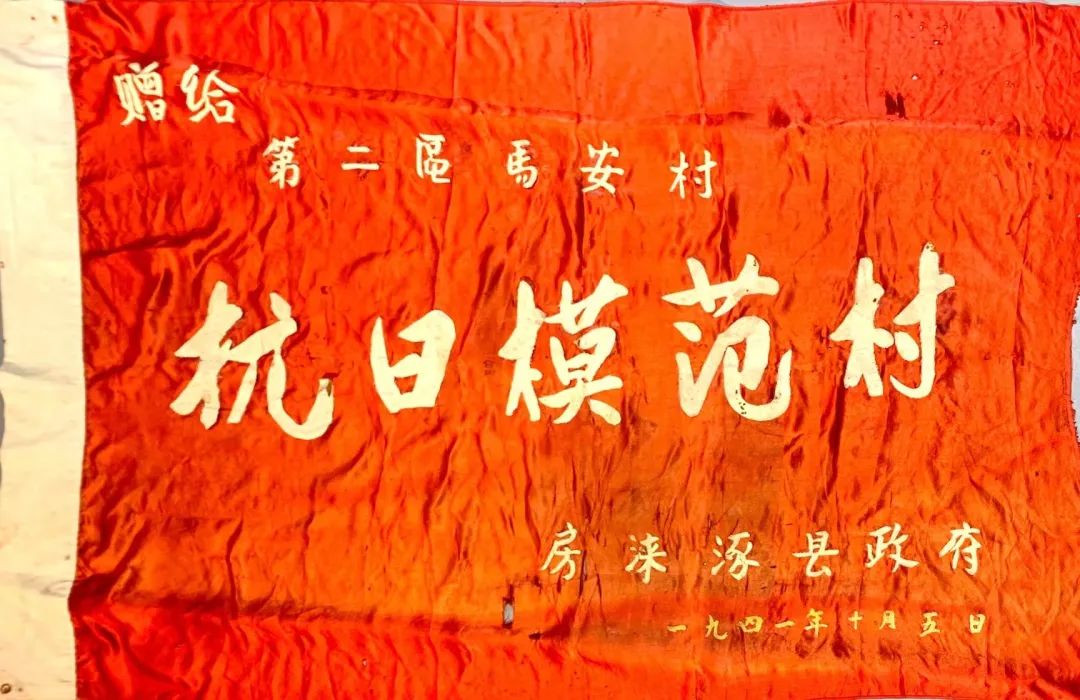 赠给
第二區馬安村
抗日模范村
房涞涿县政府
一九四一年十月五日